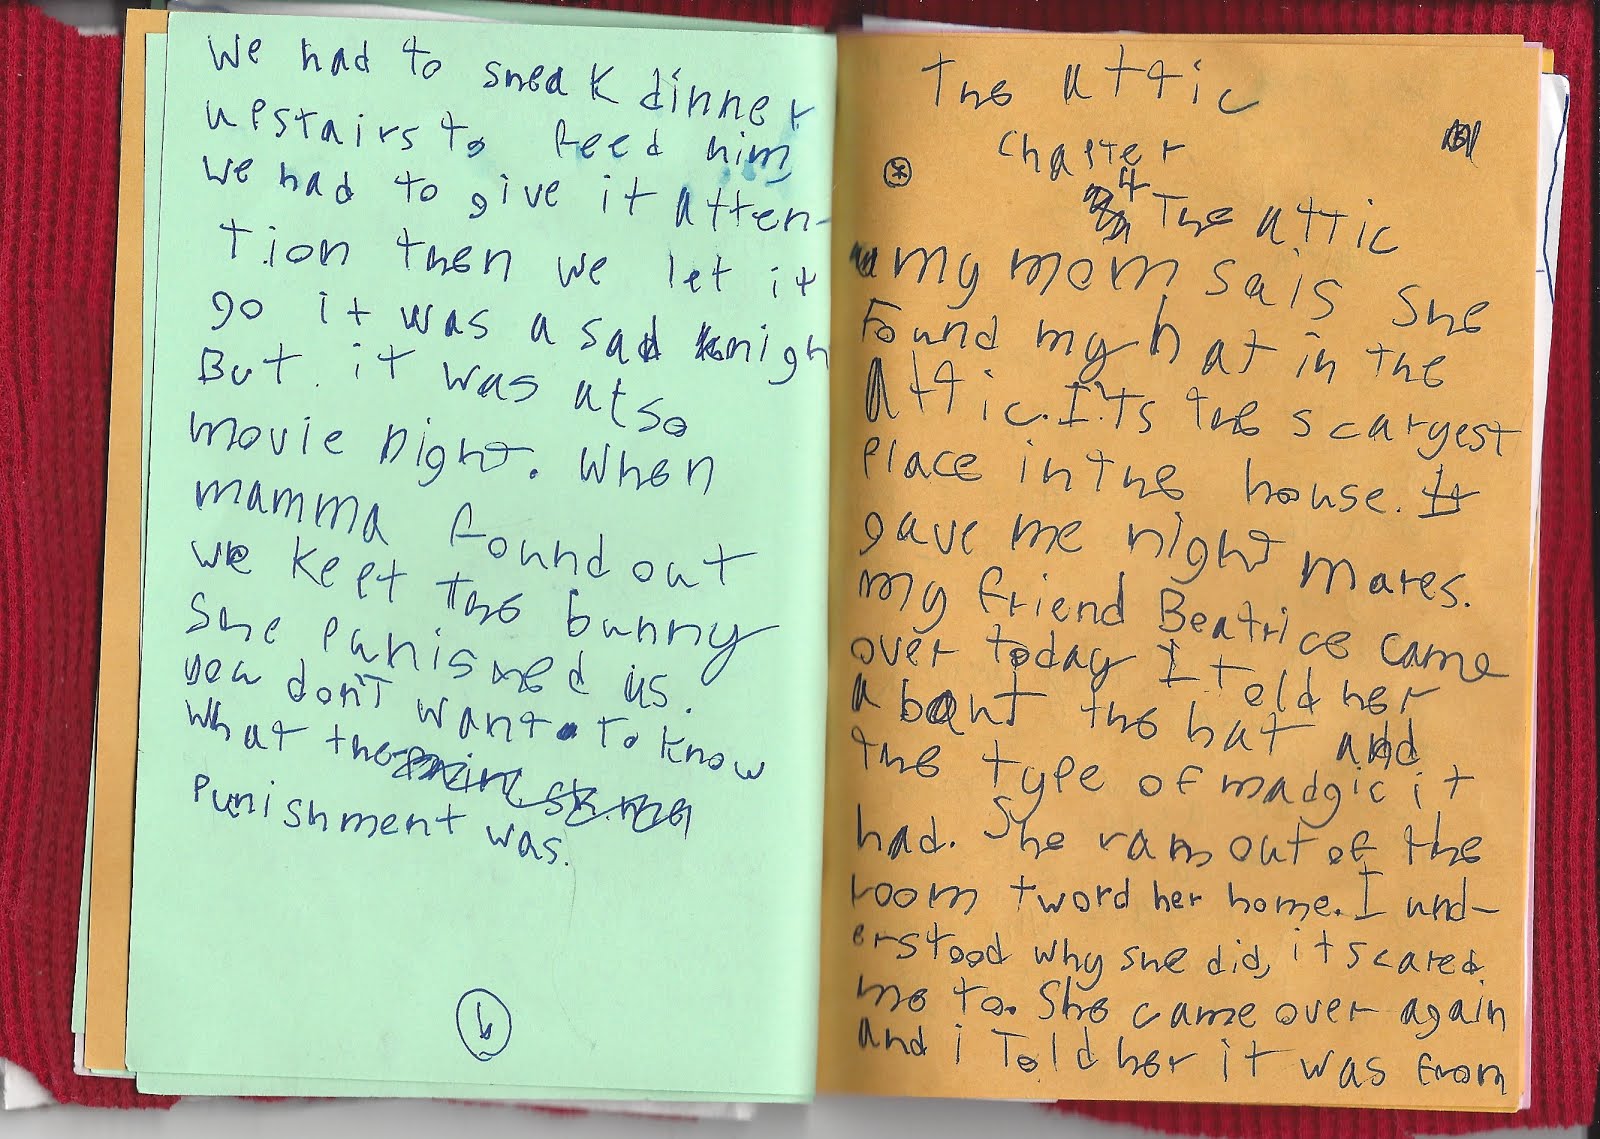 We had to sneak dinner
upstairs to feed him
We had to give it atten-
tion then we let it
go it was a sad knigh
But it was also
movie night. When
mamma found out
we kept the bunny
She punished us.
you don't want to know
what the
Punishment was.
6
The attic
Chapter
4 The attic
my mom sais she
Found my hat in the
Attic. It's the scaryest
place in the house. It
gave me night mares.
my friend Beatrice came
over today I told her
about the hat and
the type of madgic it
had. She ran out of the
room tword her home. I und-
erstood why she did, it scared
me to. She came over again
and i Told her it was from